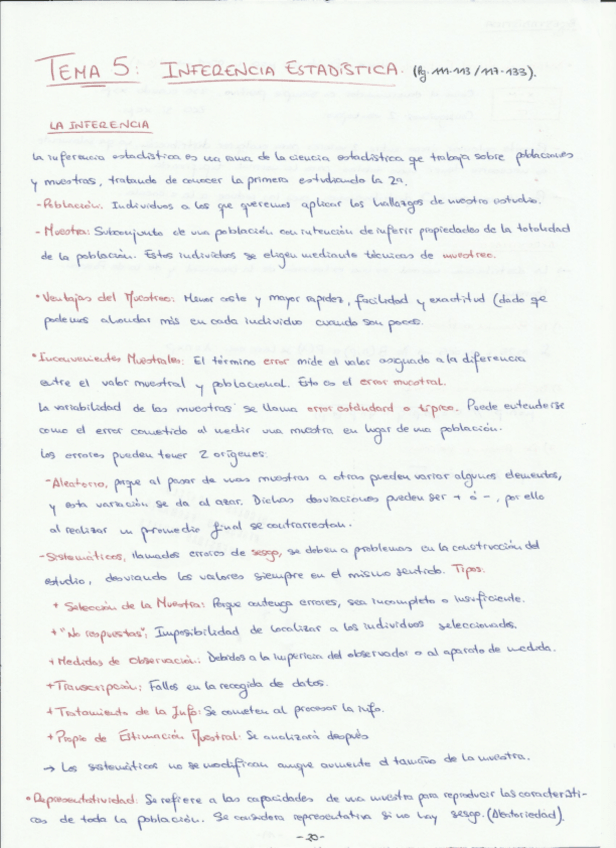 TEMA 5: INFERENCIA ESTADÍSTICA. (Pg. 111-113 / 117-133).
LA INFERENCIA
La inferencia estadística es una rama de la ciencia estadística qe trabaja sobre poblaciones
y muestras, tratando de conocer la primera estudiando la 2ª.
- Población: Individuos a los que queremos aplicar los hallazgos de nuestro estudio.
- Muestra: Subconjunto de una población con intención de inferir propiedades de la totalidad
de la población. Estos individuos se eligen mediante técnicas de muestreo.
• Ventajas del Muestreo: Menor coste y mayor rapidez, facilidad y exactitud (dado qe
podemos ahondar más en cada individuo cuando son pocos.
• Inconvenientes Muestrales: El término error mide el valor asignado a la diferencia
entre el valor muestral y poblacional. Esto es el error muestral.
La variabilidad de las muestras se llama error estándard o típico. Puede entenderse
como el error cometido al medir una muestra en lugar de una población.
Los errores pueden tener 2 orígenes:
- Aleatorio, porque al pasar de unas muestras a otras pueden variar algunos elementos,
y esta variación se da al azar. Dichas desviaciones pueden ser + ó -, por ello
al realizar un promedio final se contrarrestan.
- Sistemáticos, llamados errores de sesgo, se deben a problemas en la construcción del
estudio, desviando los valores siempre en el mismo sentido. Tipos:
+ Selección de la Muestra: Porque contenga errores, sea incompleta o insuficiente.
+ "No respuestas": Imposibilidad de localizar a los individuos seleccionados.
+ Medidas de Observación: Debidos a la impericia del observador o al aparato de medida.
+ Transcripción: Fallos en la recogida de datos.
+ Tratamiento de la Info: Se cometen al procesar la info.
+ Propio de Estimación Muestral: Se analizará después
→ Los sistemáticos no se modifican aunque aumente el tamaño de la muestra.
• Representatividad: Se refiere a las capacidades de una muestra para reproducir las característi-
cas de toda la población. Se considera representativa si no hay sesgo. (Aleatoriedad).
- 20 -